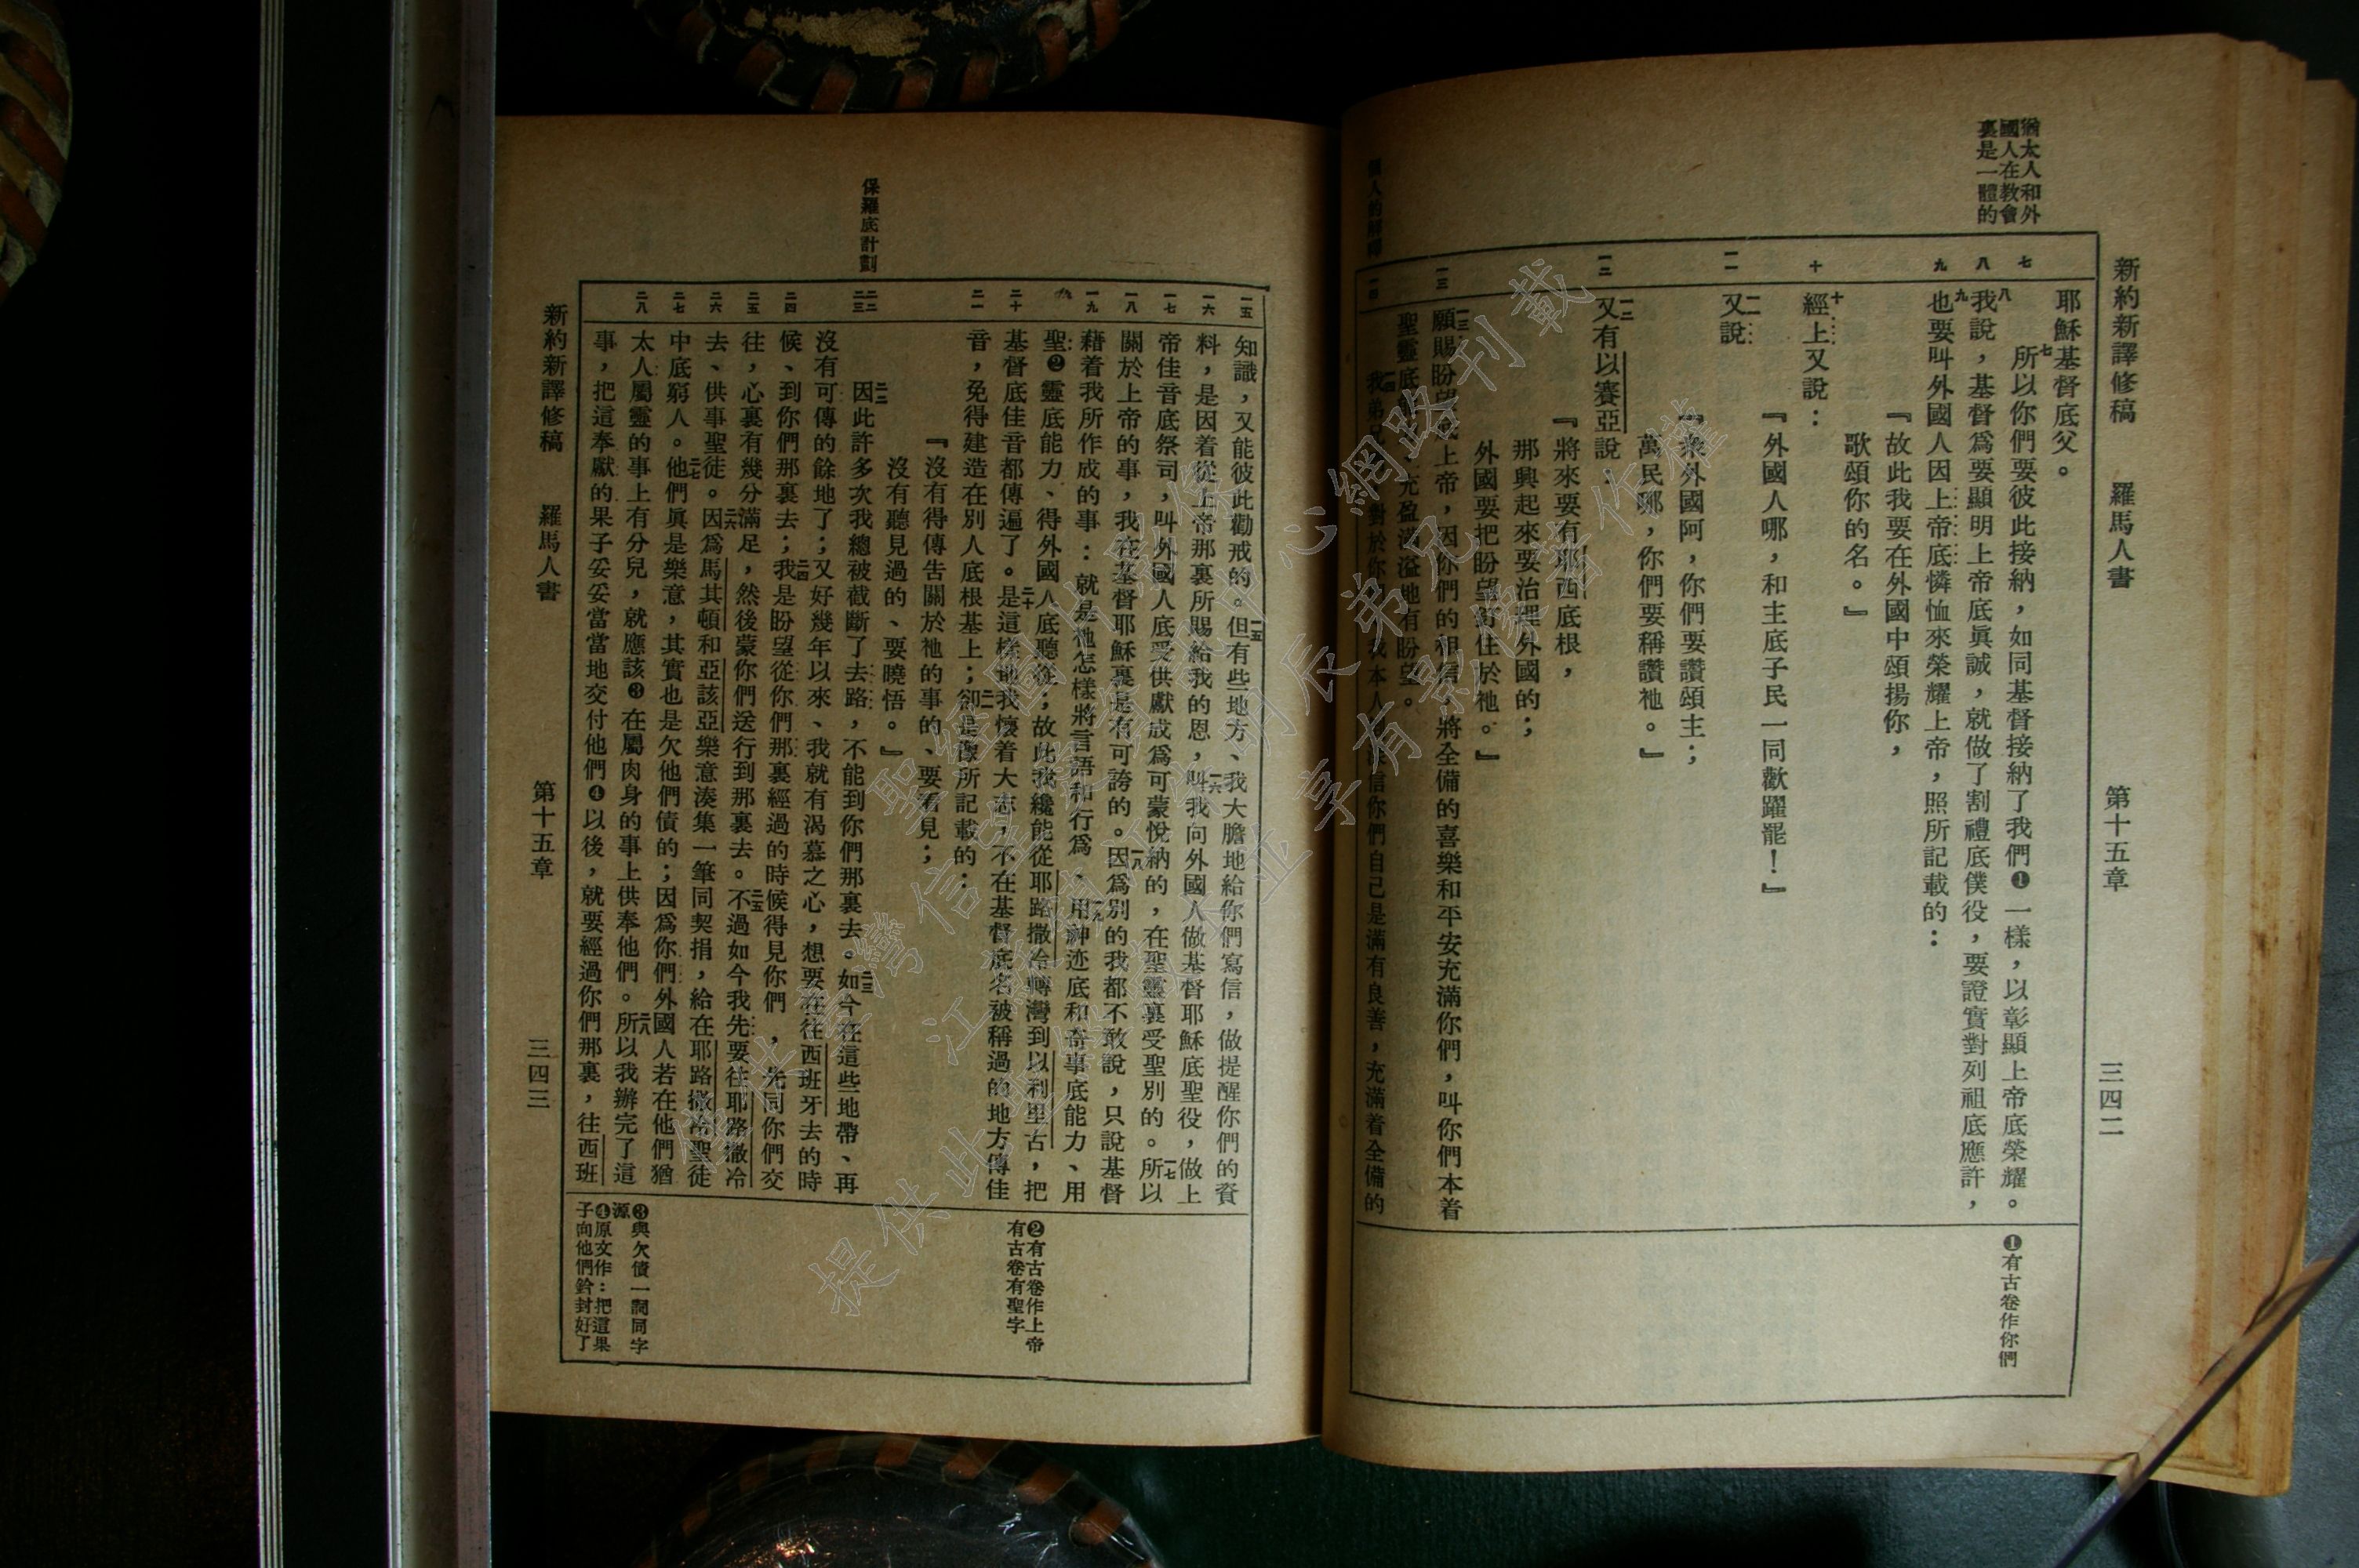 新約新譯修稿　羅馬人書　第十五章　三四二
猶太人和外
國人在教會
裏是一體的
七
八
九
十
一一
一二
一三
一四
耶穌基督底父。
七所以你們要彼此接納，如同基督接納了我們❶一樣，以彰顯上帝底榮耀。
八我說，基督爲要顯明上帝底眞誠，就做了割禮底僕役，要證實對列祖底應許，
九也要叫外國人因上帝底憐恤來榮耀上帝，照所記載的：
『故此我要在外國中頌揚你，
歌頌你的名。』
十經上又說：
『外國人哪，和主底子民一同歡躍罷！』
一一又說
『衆外國阿，你們要讚頌主；
萬民哪，你們要稱讚祂。』
一二又有以賽亞說：
『將來要有耶西底根，
那興起來要治理外國的；
外國要把盼望寄住於祂。』
一三願賜盼望底上帝，因你們的相信，將全備的喜樂和平安充滿你們，叫你們本着
聖靈底能力充盈滿溢地有盼望。
我本人深信你們自己是滿有良善，充滿着全備的
❶有古卷作你們
保羅底計劃
一五
一六
一七
一八
一九
二十
二一
二二
二三
二四
二五
二六
二七
二八
知識，又能彼此勸戒的。一五但有些地方、我大膽地給你們寫信，做提醒你們的資
料，是因着從上帝那裏所賜給我的恩，一六叫我向外國人做基督耶穌底聖役，做上
帝佳音底祭司，叫外國人底受供獻成爲可蒙悅納的，在聖靈裏受聖別的。一七所以
關於上帝的事，我在基督耶穌裏是有可誇的。一八因爲別的我都不敢說，只說基督
藉着我所作成的事：就是祂怎樣將言語和行爲、一九用神迹底和奇事底能力、用
聖❷靈底能力、得外國人底聽從；故此我纔能從耶路撒冷轉灣到以利里古，把
基督底佳音都傳遍了。二十是這樣地我懷着大志，不在基督底名被稱過的地方傳佳
音，免得建造在別人底根基上；二一卻是像所記載的：
『沒有得傳告關於祂的事的、要看見；
沒有聽見過的、要曉悟。』
二二因此許多次我總被截斷了去路，不能到你們那裏去。二三如今在這些地帶、再
沒有可傳的餘地了；又好幾年以來、我就有渴慕之心，想要在往西班牙去的時
候、到你們那裏去；二四我是盼望從你們那裏經過的時候得見你們，先同你們交
往，心裏有幾分滿足，然後蒙你們送行到那裏去。二五不過如今我先要往耶路撒冷
去、供事聖徒。二六因爲馬其頓和亞該亞樂意湊集一筆同契捐，給在耶路撒冷聖徒
中底窮人。二七他們眞是樂意，其實也是欠他們債的；因爲你們外國人若在他們猶
太人屬靈的事上有分兒，就應該❸在屬肉身的事上供奉他們。二八所以我辦完了這
事，把這奉獻的果子妥妥當當地交付他們❹以後，就要經過你們那裏，往西班
❷有古卷作上帝
有古卷有聖字
❸與欠債一詞同字
源
❹原文作：把這果
子向他們鈐封好了
新約新譯修稿　羅馬人書　第十五章　三四三